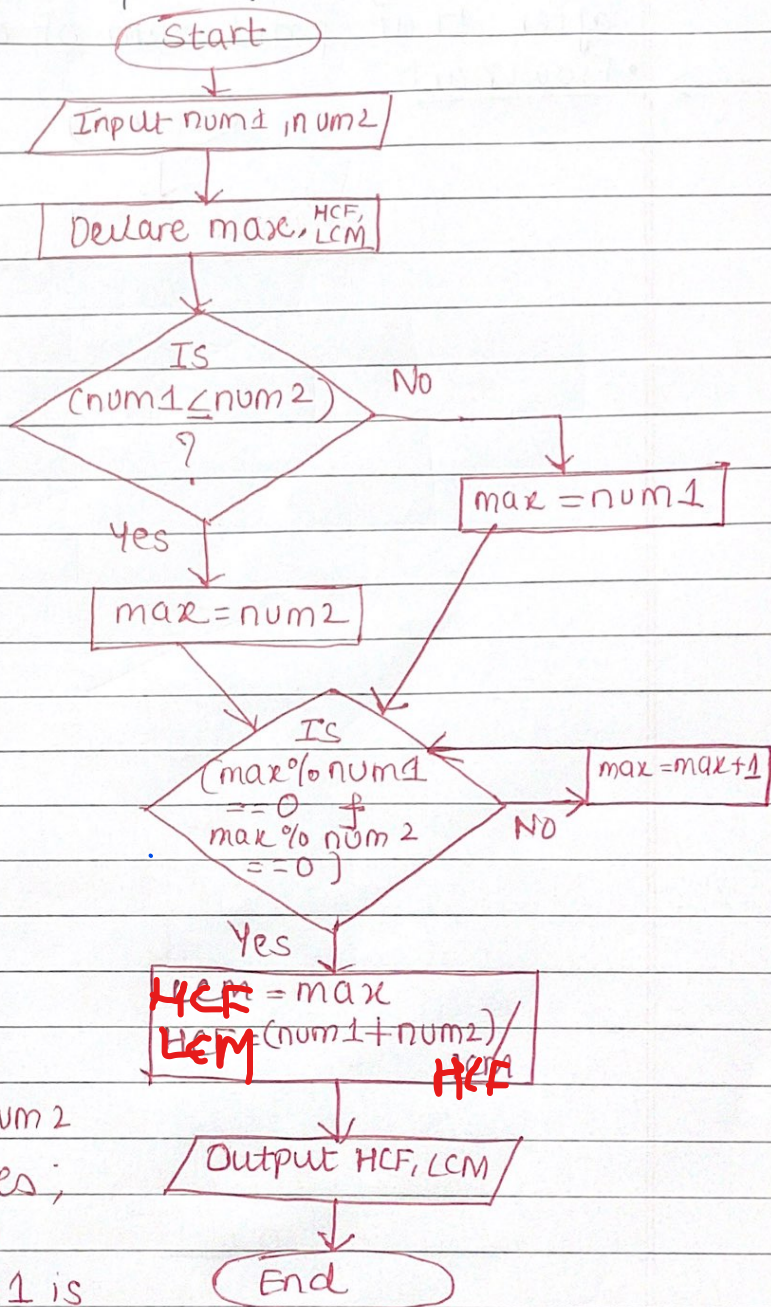 Start
Input num1, num2
Declare max, HCF,
LCM
IS
(num1≤num2)
?
No
Yes
max = num1
max = num2
IS
(max% num1
==0 &
max % num 2
==0)
NO
max = max+1
Yes
HCF = max
LCM =(num1+num2)/
HCF
Output HCF, LCM
End
um2
es;
1 is